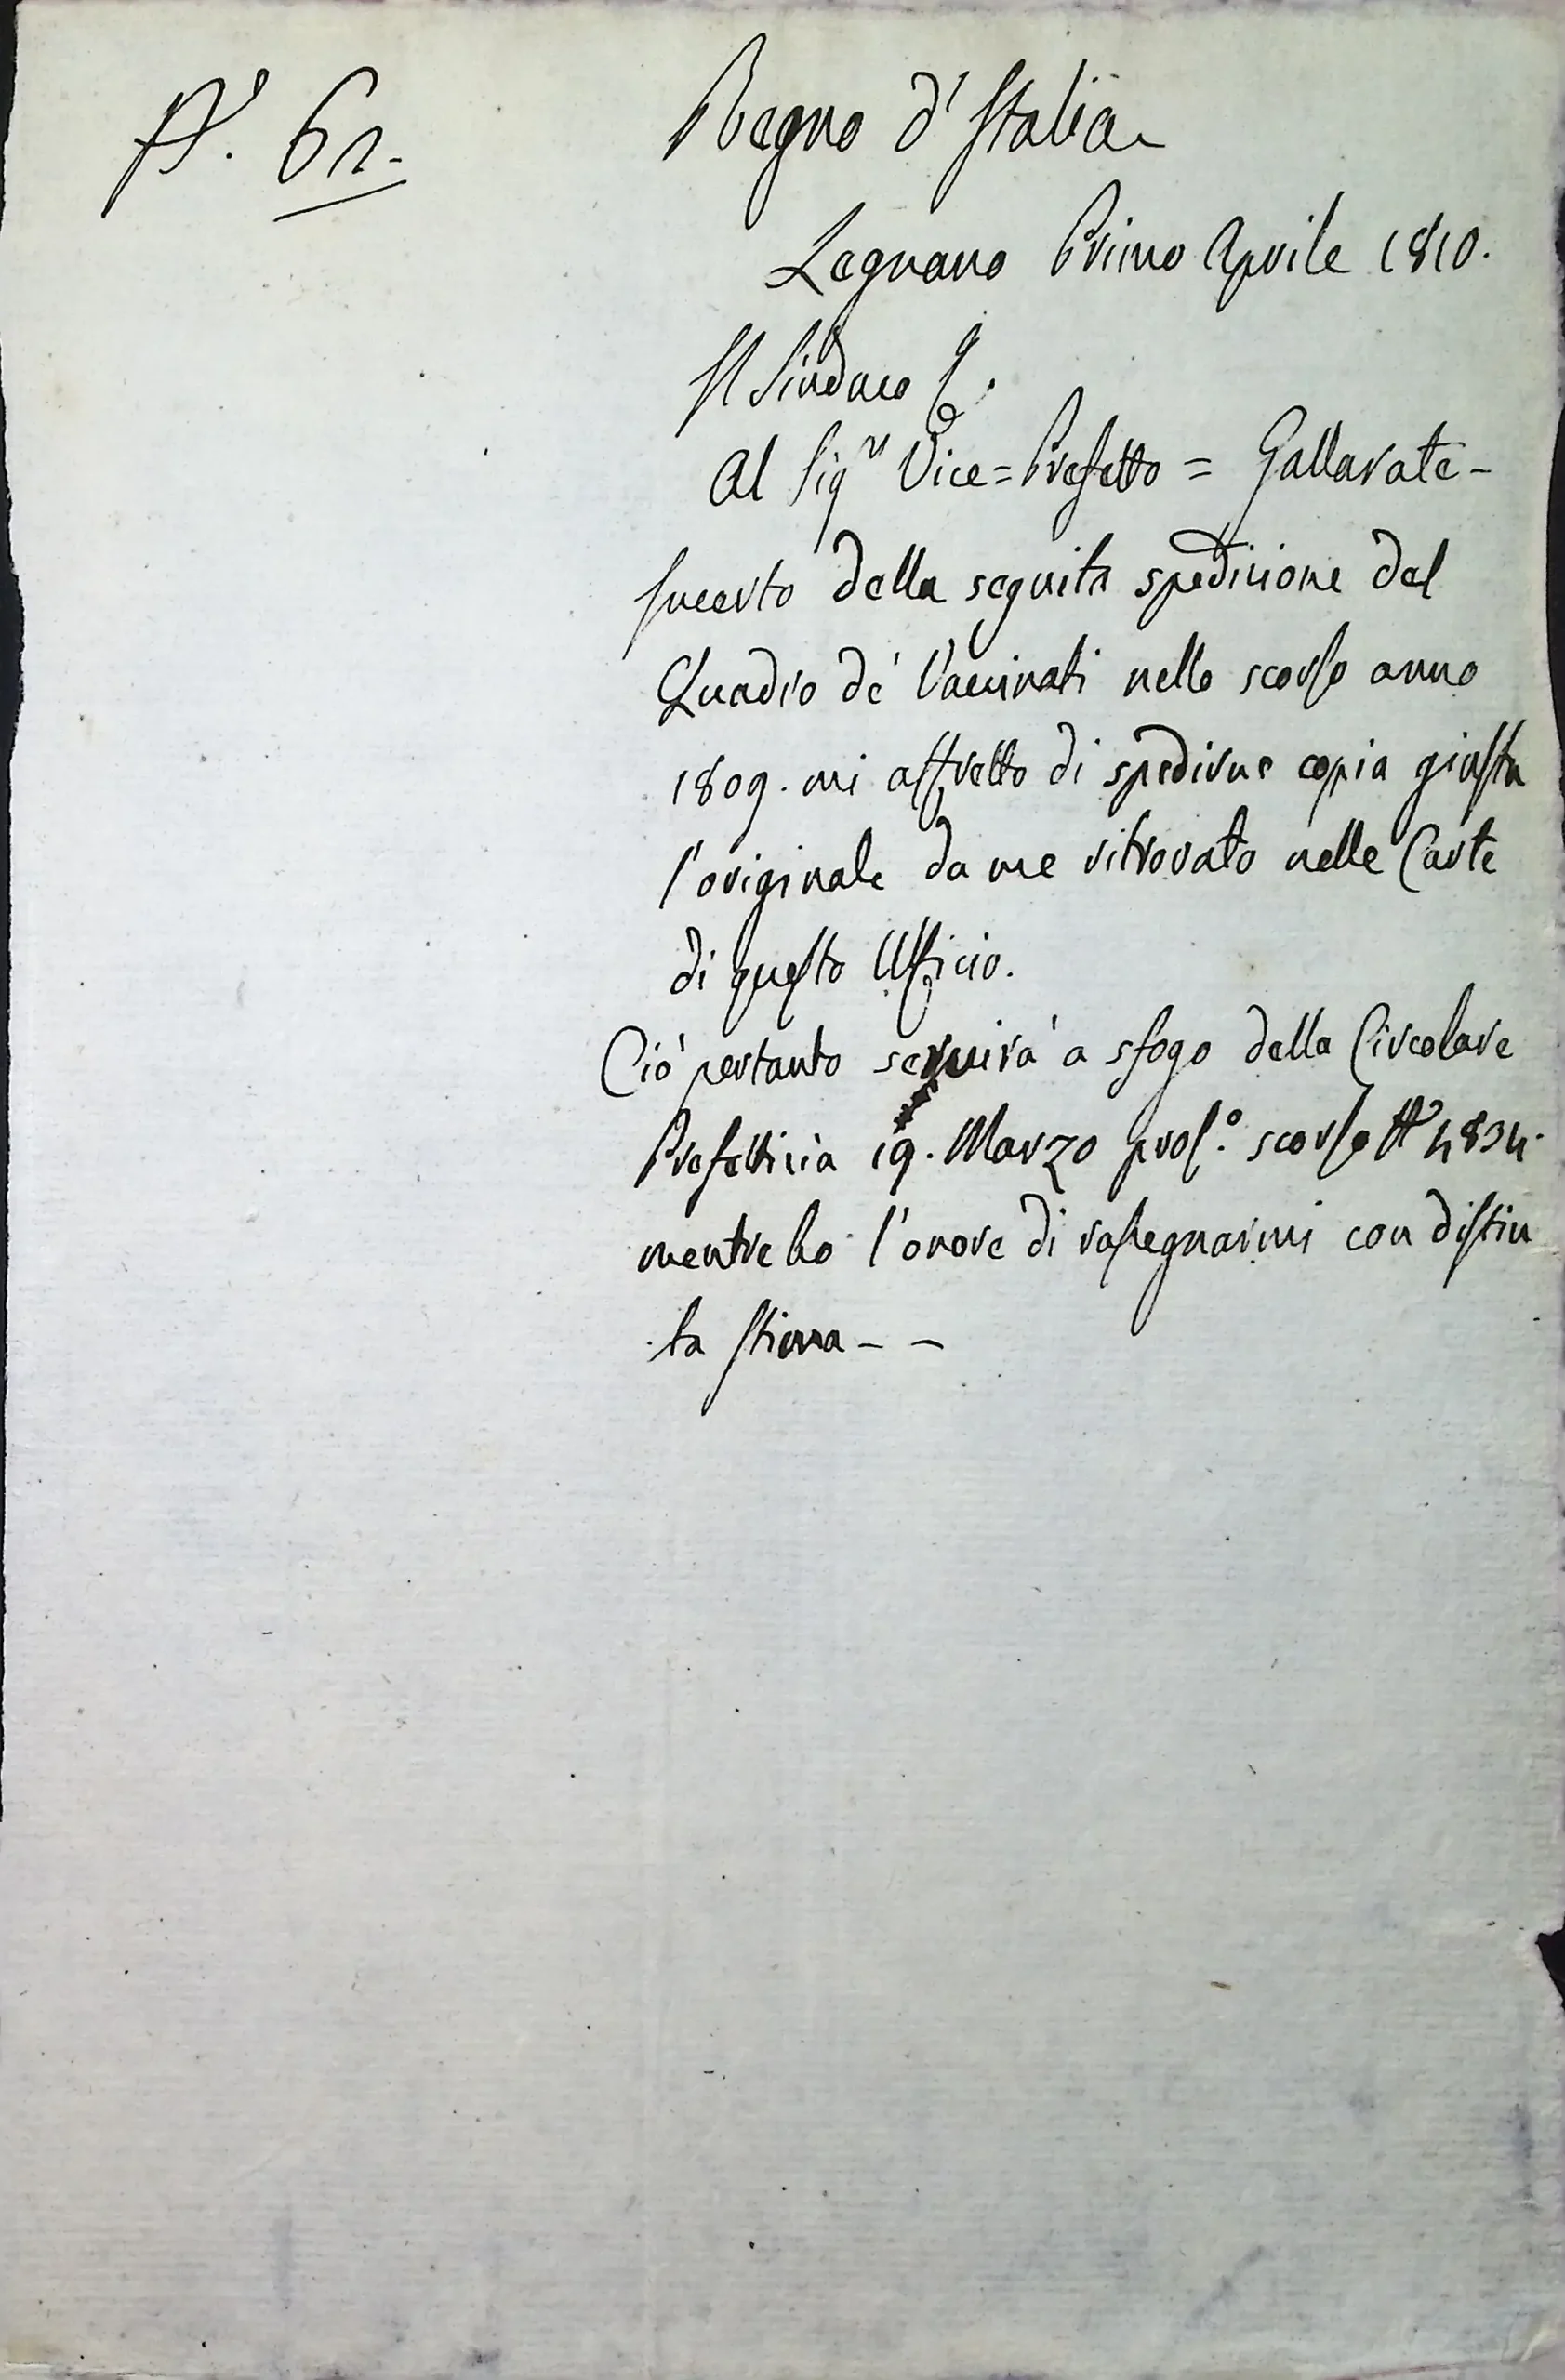 N.° 62.
Regno d'Italia
Legnano Primo Aprile 1810.
Il Sindaco
Al Sig.r Vice=Prefetto = Gallarate -
Incerto della seguita spedizione del
Quadro de' Vaccinati nello scorso anno
1809. mi affretto di spedirne copia giusta
l'originale da me ritrovato nelle Carte
di questo Ufficio.
Ciò pertanto servirà a sfogo della Circolare
Prefettizia 19. Marzo pros.° scorso N.°
mentre ho l'onore di rassegnarmi con distin
ta stima - -